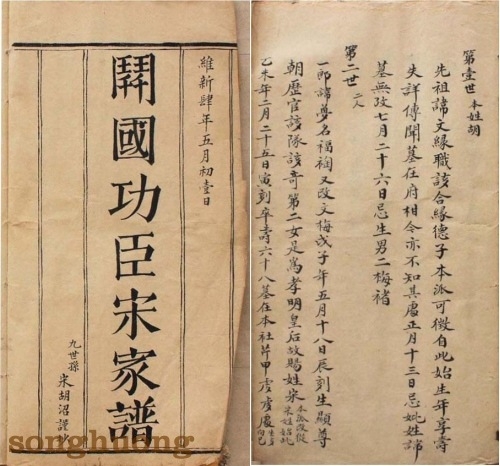 維新肆年五月初壹日
開國功臣宋家譜
九世孫
宋胡沼謹抄
第壹世 本姓胡
先祖諱文緣職該合緣德子本派可徵自此始生年享壽
失詳傳聞墓在府相今亦不知其處正月十三日忌妣姓諱
墓無攷七月二十六日忌生男二梅褚
第二世 二人
一郎諱夢名福裪又改文梅戊子年五月十八日辰刻生顯尊
朝歷官該隊該奇第二女是爲孝明皇后故賜姓宋 本派改從宋姓
乙未年二月二十五日寅刻卒壽六十八墓在本社芹甲處 向巳
songhuong